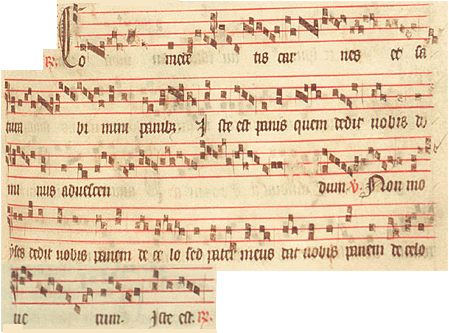 ℟. Co mede tis car nes et sa
tura bi mini panibꝫ. I ste est panis quem dedit uobis do
mi nus aduescen dum. ℣. Non mo
yses dedit uobis panem de ce lo sed pater meus dat uobis panem de celo
ue rum. Iste est. ℟.